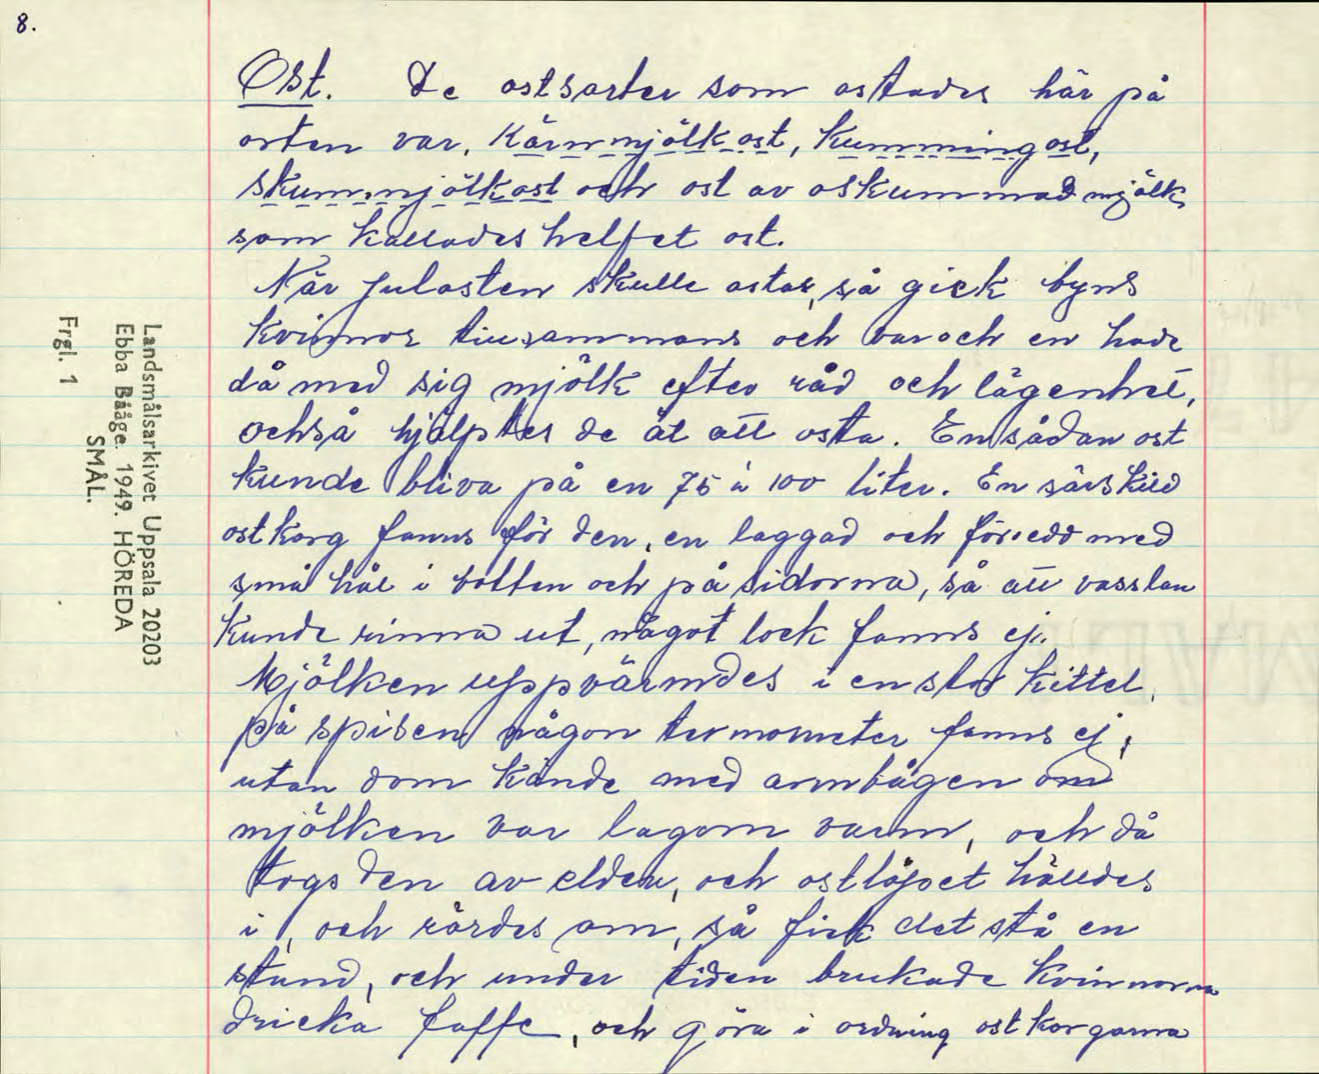 8.
Ost. De ostsorter som ostades här på
orten var, Kärnmjölkost, Kummingost,
Skummjölkost och ost av oskummad mjölk
som kallades helfet ost.
När Julosten skulle ostas, så gick byns
kvinnor tillsammans och var och en hade
då med sig mjölk efter råd och lägenhet,
också hjälptes de åt att osta. En sådan ost
kunde bliva på en 75 à 100 liter. En särskild
ostkorg fanns för den, en laggad och försedd med
små hål i botten och på sidorna, så att vasslan
kunde rinna ut, något lock fanns ej.
Mjölken uppvärmdes i en stor kittel,
på spisen någon termometer fanns ej,
utan dom kände med armbågen om
mjölken var lagom varm, och då
togs den av elden, och ostlöpet hälldes
i, och rördes om, så fick det stå en
stund, och under tiden brukade kvinnorna
dricka kaffe, och göra i ordning ostkorgarna
Landsmålsarkivet Uppsala 20203
Ebba Bååge. 1949. HÖREDA
SMÅL.
Frgl. 1